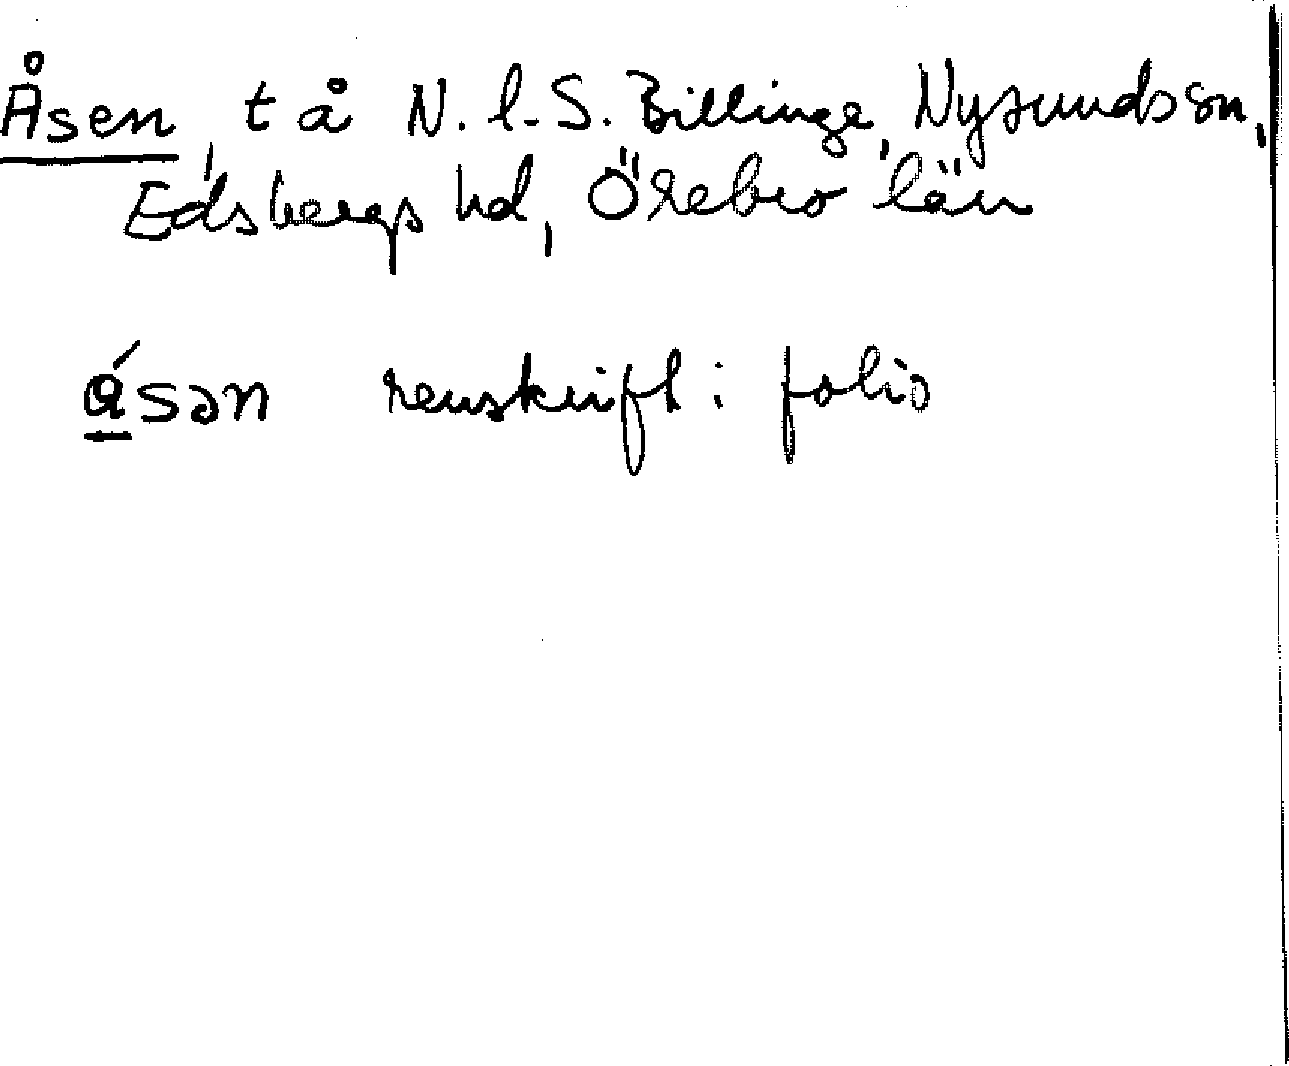 Åsen, t å N. l. S. Billinge, Nysunds sn,
Edsbergs hd, Örebro län
á̲sən renskrift i folio